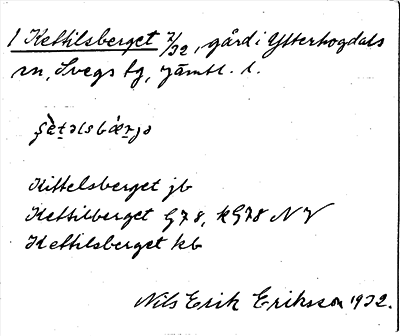 1 Kettilsberget 2/32, gård i Ytterhogdals
sn, Svegs tg, Jämtl. l.
Kittelsberget jb
Kettilberget G78, kG78 NV
Kettilsberget kb
Nils Erik Eriksson 1932.